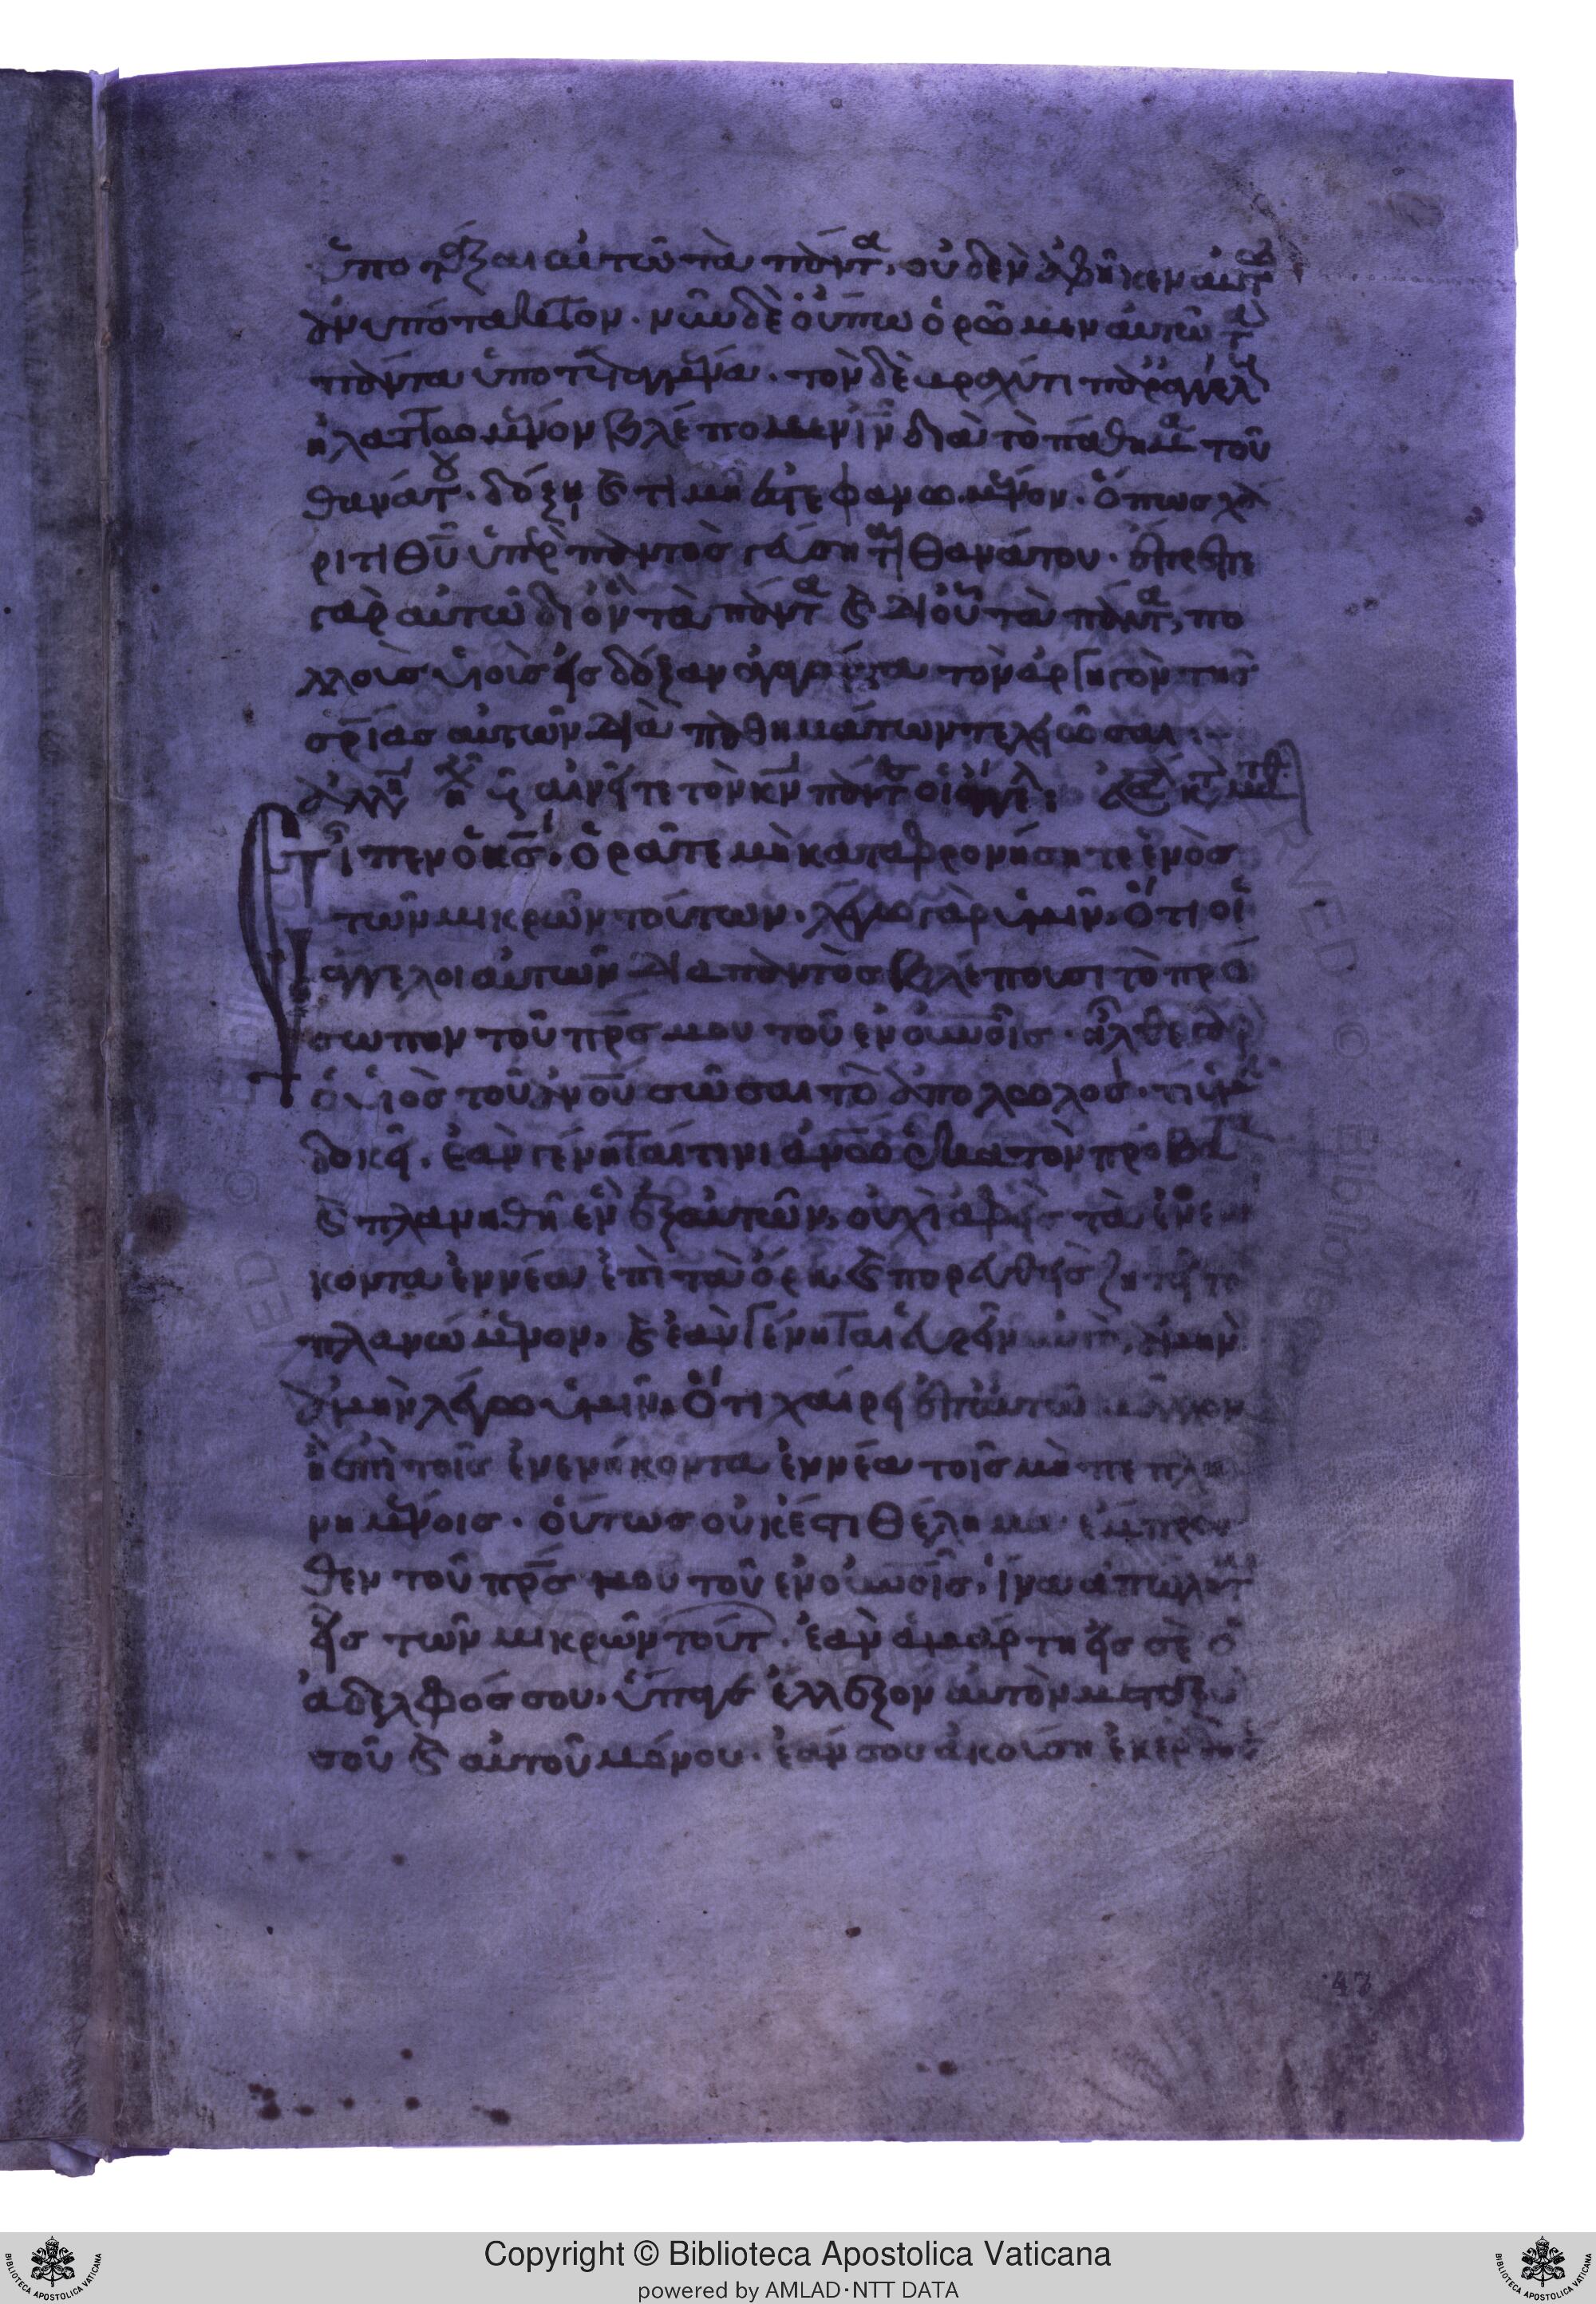 ὑποτάξαι αὐτῶ τὰ πάντα, οὐδὲν ἀφῆκεν αὐτῶ
ἀνυπότακτον. νῦν δὲ οὔπω ὁρῶμεν αὐτῶ τὰ
πάντα ὑποτεταγμένα. τὸν δὲ βραχύτι παρ' ἀγγέλους
ἠλαττωμένον βλέπομεν ιν διὰ τὸ πάθημα τοῦ
θανάτου. δόξη καὶ τιμῆ ἐστεφανωμένον. ὅπως χά
ριτι θυ ὑπὲρ παντὸς γεύσηται θανάτου. ἔπρεπε
γὰρ αὐτῶ δι ὃν τὰ πάντα καὶ δι οὗ τὰ πάντα, πο
λλοὺς υἱοὺς εἰς δόξαν ἀγαγόντα τὸν ἀρχηγὸν τῆς
σρίας αὐτῶν διὰ παθημάτων τελειῶσαι
αἰνεῖτε τὸν κν πάντες οἱ ἄγγελοι
Εἶπεν ὁ κς, ὁρᾶτε μὴ καταφρονήσητε ἑνὸς
τῶν μικρῶν τούτων. λέγω γὰρ ὑμῖν, ὅτι οἱ
ἄγγελοι αὐτῶν διαπαντὸς βλέπουσι τὸ πρό
σωπον τοῦ πρς μου τοῦ ἐν οὐνοῖς. ἦλθε γὰρ
ὁ υἱὸς τοῦ ἀνου σῶσαι τὸ ἀπολωλός. τί ὑμῖν
δοκεῖ. ἐὰν γένηται τινι ἀνω ἑκατὸν πρόβατα
καὶ πλανηθῆ ἓν ἐξ αὐτῶν, οὐχὶ ἀφεὶς τὰ ἐνενη
κονταεννέα ἐπὶ τὰ ὄρη καὶ πορευθεὶς ζητεῖ τὸ
πλανώμενον, καὶ ἐὰν γένηται εὑρεῖν αὐτὸ, ἀμὴν
ἀμὴν λέγω ὑμῖν, ὅτι χαίρει ἐπ' αὐτῶ μᾶλλον
ἢ ἐπὶ τοῖς ἐνενήκονταεννέα τοῖς μὴ πεπλα
νημένοις. οὕτως οὐκ ἔστι θέλημα ἔμπροσ
θεν τοῦ πρς μου τοῦ ἐν οὐνοῖς, ἵνα ἀπώληται
εἷς τῶν μικρῶν τούτων. ἐὰν ἁμάρτη εἰς σὲ ὁ
ἀδελφός σου, ὕπαγε ἔλλεξον αὐτὸν μεταξὺ
σοῦ καὶ αὐτοῦ μόνου. ἐάν σου ἀκούση ἐκέρδησας
47
Copyright © Biblioteca Apostolica Vaticana
powered by AMLAD·NTT DATA